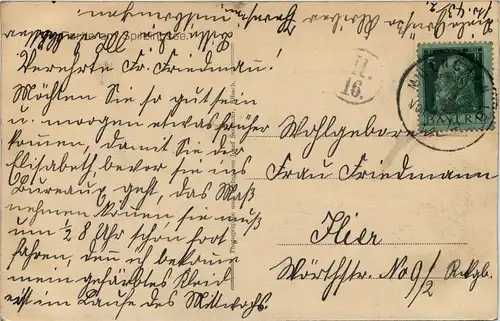 Spitzingsee.
Verehrte Fr. Friedmann!
Möchten Sie so gut sein
u. morgen etwas früher
kommen, damit Sie der
Elisabeth, bevor sie ins
Bureau geht, das Maß
nehmen können, sie muß
um ½ 8 Uhr schon fort
fahren, den ich bekomme
mein gefärbtes Kleid
erst im Laufe des Mittwochs.
II.
16.
5
BAYERN
Wohlgeboren
Frau Friedmann
Hier
Wörthstr. No 9/2 Rckgb.